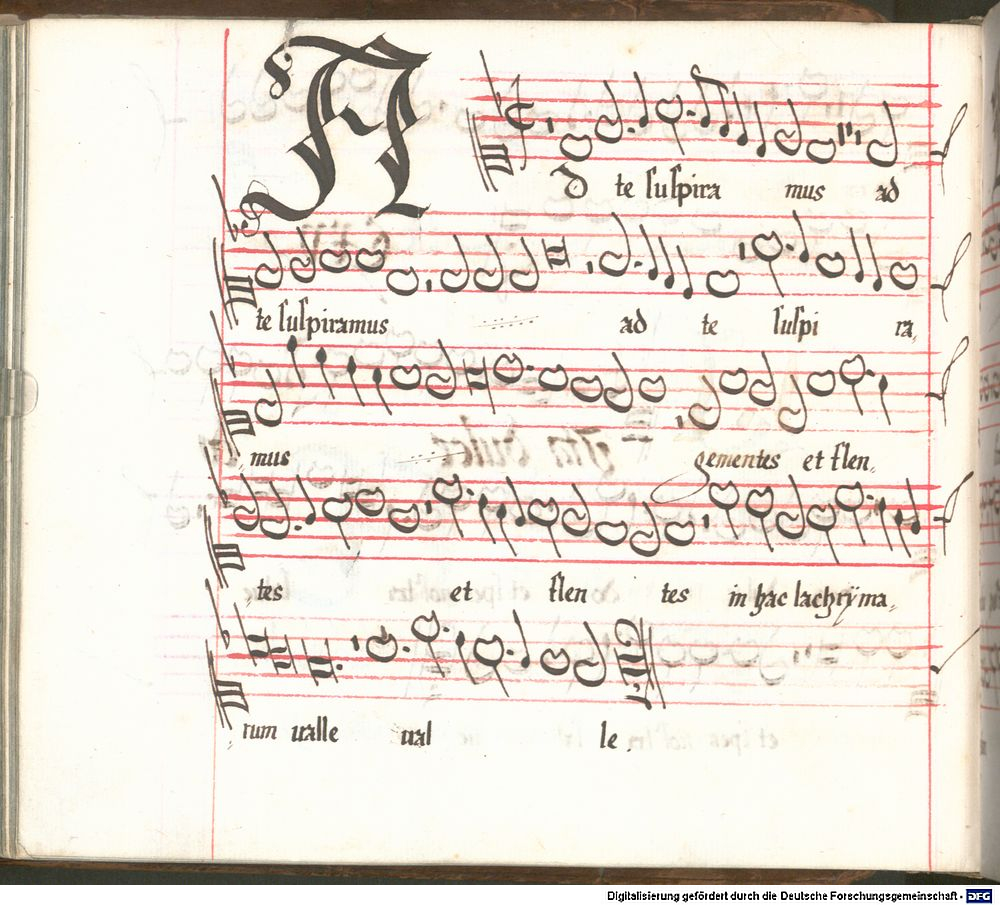 AD te suspira mus ad
te suspiramus ad te suspi ra
mus gementes et flen
tes et flen tes in hac lachrÿma
rum ualle ual le
Digitalisierung gefördert durch die Deutsche Forschungsgemeinschaft - DFG